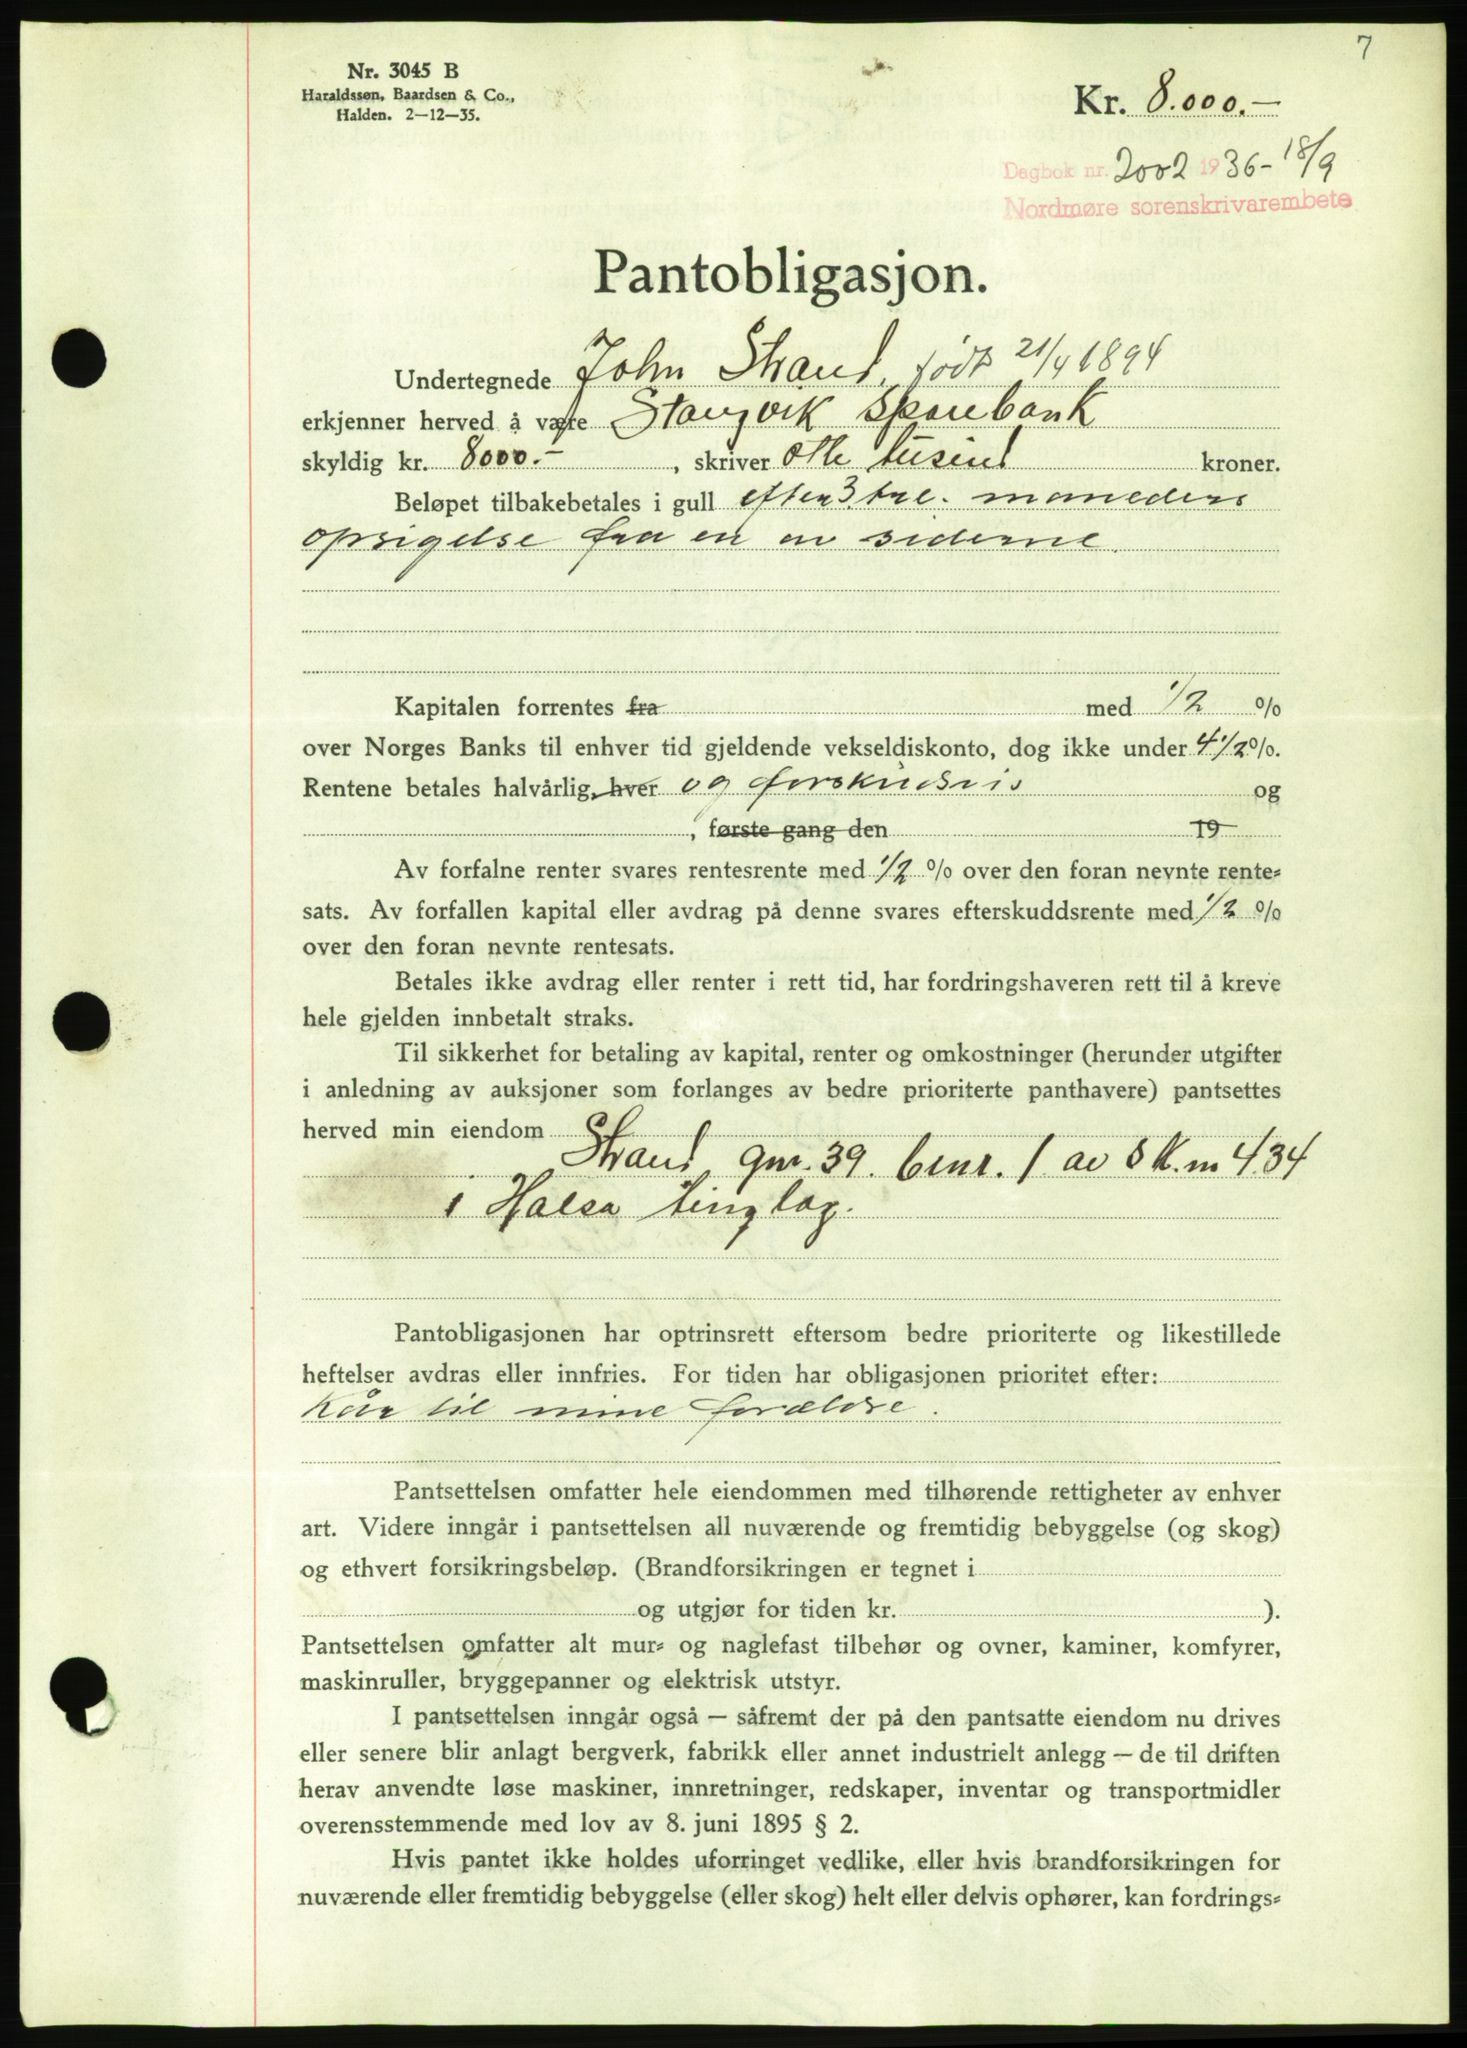 7
Nr. 3045 B
Haraldssøn, Baardsen & Co.,
Halden. 2—12—35.
Kr. 8.000.-
Dagbok nr. 2002 1936 - 18/9
Nordmøre sorenskrivarembete
Pantobligasjon.
Undertegnede John Strand, født 21/4 1894
erkjenner herved å være Stangvik Sparebank
skyldig kr. 8000.- , skriver otte tusind kroner.
Beløpet tilbakebetales i gull efter 3 tre. maneders
opsigelse fra en av siderne.
Kapitalen forrentes fra med 1/2 %
over Norges Banks til enhver tid gjeldende vekseldiskonto, dog ikke under 4 1/2 %.
Rentene betales halvårlig, hver og forskudsvis og
, første gang den 19
Av forfalne renter svares rentesrente med 1/2 % over den foran nevnte rente-
sats. Av forfallen kapital eller avdrag på denne svares efterskuddsrente med 1/2 %
over den foran nevnte rentesats.
Betales ikke avdrag eller renter i rett tid, har fordringshaveren rett til å kreve
hele gjelden innbetalt straks.
Til sikkerhet for betaling av kapital, renter og omkostninger (herunder utgifter
i anledning av auksjoner som forlanges av bedre prioriterte panthavere) pantsettes
herved min eiendom
Strand, gnr. 39. bnr. 1 av sk.m 4.34
i Halsa tinglag.
Pantobligasjonen har optrinsrett eftersom bedre prioriterte og likestillede
heftelser avdras eller innfries. For tiden har obligasjonen prioritet efter:
Kår til mine forældre.
Pantsettelsen omfatter hele eiendommen med tilhørende rettigheter av enhver
art. Videre inngår i pantsettelsen all nuværende og fremtidig bebyggelse (og skog)
og ethvert forsikringsbeløp. (Brandforsikringen er tegnet i
og utgjør for tiden kr. ).
Pantsettelsen omfatter alt mur- og naglefast tilbehør og ovner, kaminer, komfyrer,
maskinruller, bryggepanner og elektrisk utstyr.
I pantsettelsen inngår også — såfremt der på den pantsatte eiendom nu drives
eller senere blir anlagt bergverk, fabrikk eller annet industrielt anlegg — de til driften
herav anvendte løse maskiner, innretninger, redskaper, inventar og transportmidler
overensstemmende med lov av 8. juni 1895 § 2.
Hvis pantet ikke holdes uforringet vedlike, eller hvis brandforsikringen for
nuværende eller fremtidig bebyggelse (eller skog) helt eller delvis ophører, kan fordrings-